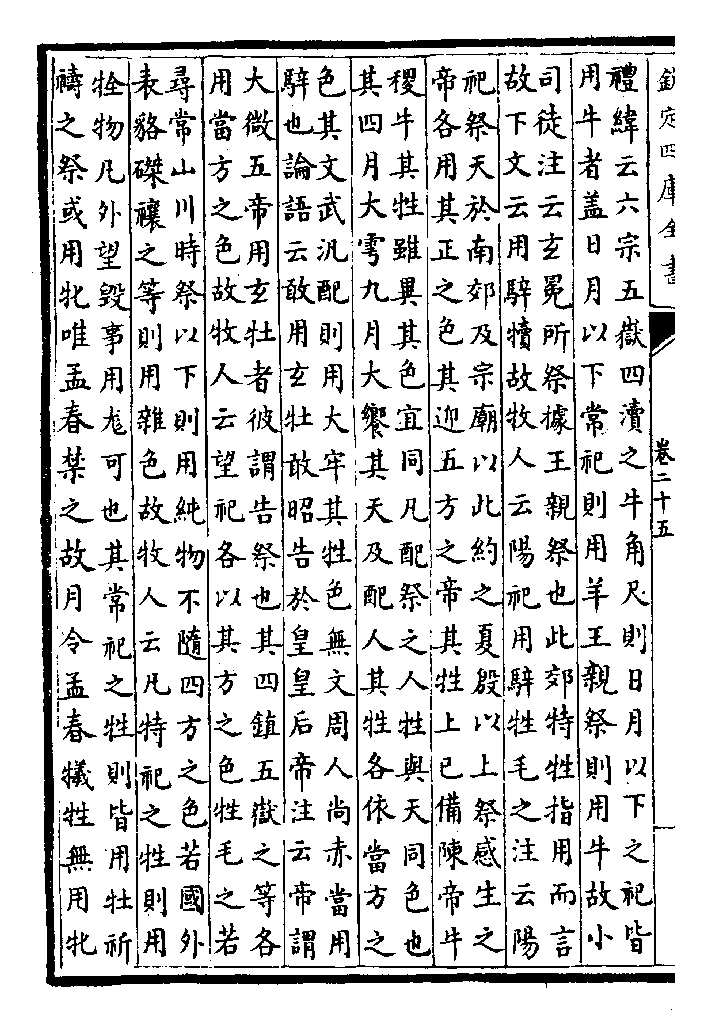 欽定四庫全書
卷二十五
禮緯云六宗五嶽四瀆之牛角尺則日月以下之祀皆
用牛者盖日月以下常祀則用羊王親祭則用牛故小
司徒注云玄冕所祭據王親祭也此郊特牲指用而言
故下文云用騂犢故牧人云陽祀用騂牲毛之注云陽
祀祭天於南郊及宗廟以此約之夏殷以上祭感生之
帝各用其正之色其迎五方之帝其牲上已備陳帝牛
稷牛其牲雖異其色宜同凡配祭之人牲與天同色也
其四月大雩九月大饗其天及配人其牲各依當方之
色其文武汎配則用大牢其牲色無文周人尚赤當用
騂也論語云敢用玄牡敢昭告於皇皇后帝注云帝謂
大微五帝用玄牡者彼謂告祭也其四鎮五嶽之等各
用當方之色故牧人云望祀各以其方之色牲毛之若
尋常山川時祭以下則用純物不隨四方之色若國外
表貉磔禳之等則用雜色故牧人云凡特祀之牲則用
牷物凡外望毀事用尨可也其常祀之牲則皆用牡祈
禱之祭或用牝唯孟春禁之故月令孟春犧牲無用牝